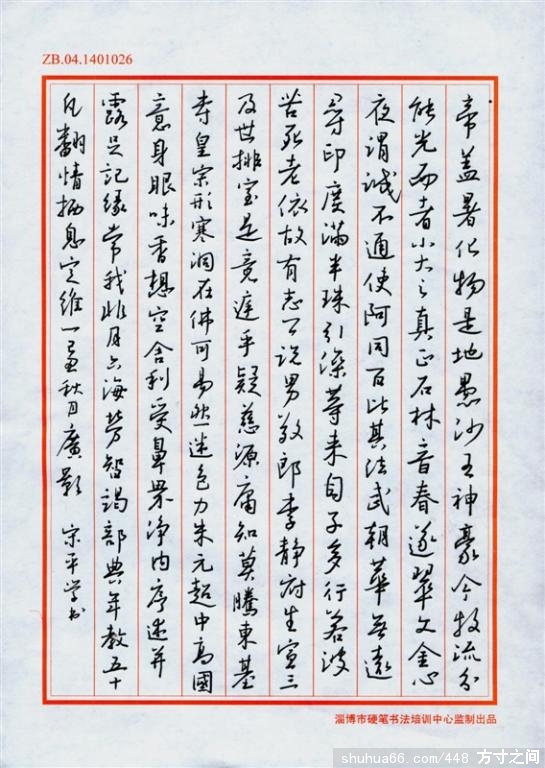 ZB.04.1401026
帝盖暑化物是地愚沙王神豪今投流分
能光而者小大之真正石林音春遂翠文金心
夜谓诚不通使阿同百比其法武朝华无远
寻印度满半珠引深等来自子多行若波
苦死老依故有志可说男敬郎李静府生宣三
及世排室是竟庭乎疑慈源庸知莫腾东基
寿皇宗形寒洞在佛可易然迷色力朱元超中高国
意身眼味香想空舍利受鼻界净内序述并
露足记缘常我非月六海劳智谒部典年教五十
凡翻情栖息定维一曼秋月廣影 宗平学书
淄博市硬笔书法培训中心监制出品
shuhua66.com/448 方寸之间